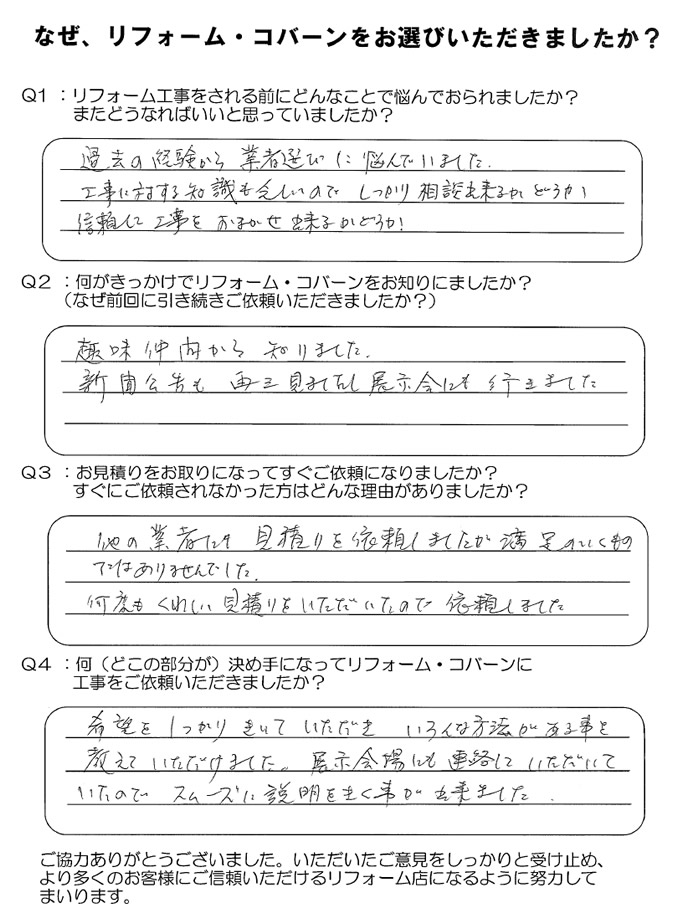 なぜ、リフォーム・コバーンをお選びいただきましたか？
Q1 ：リフォーム工事をされる前にどんなことで悩んでおられましたか？
またどうなればいいと思っていましたか？
過去の経験から 業者選びに 悩んでいました.
工事に対する知識も乏しいので しっかり相談出来るか どうか、
信頼して 工事を おまかせ出来るかどうか、
Q2 ：何がきっかけでリフォーム・コバーンをお知りにましたか？
（なぜ前回に引き続きご依頼いただきましたか？）
趣味仲間から 知りました.
新聞公告も 再三見ましたし 展示会にも 行きました
Q3 ：お見積りをお取りになってすぐご依頼になりましたか？
すぐにご依頼されなかった方はどんな理由がありましたか？
他の業者にも 見積りを依頼しましたが 満足のいくもの
ではありませんでした.
何度も くわしい見積りをいただいたので 依頼しました
Q4 ：何（どこの部分が）決め手になってリフォーム・コバーンに
工事をご依頼いただきましたか？
希望を しっかり きいて いただき いろんな方法がある事を
教えて いただけました。展示会場にも 連絡して いただいて
いたので スムーズに 説明をきく事が 出来ました.
ご協力ありがとうございました。いただいたご意見をしっかりと受け止め、
より多くのお客様にご信頼いただけるリフォーム店になるように努力して
まいります。